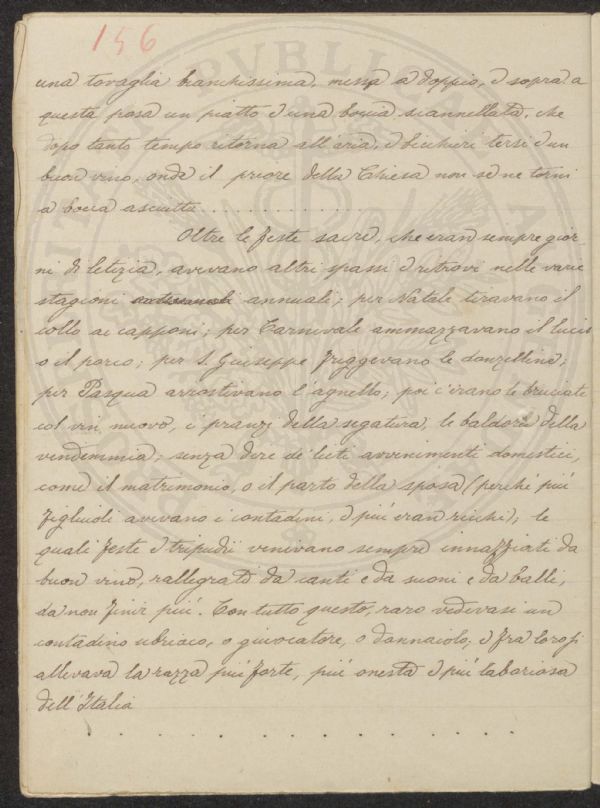 156
una tovaglia bianchissima, messa a doppio, e sopra a
questa posa un piatto e una boccia scannellata, che
dopo tanto tempo ritorna all'aria, e bicchieri tersi e un
buon vino, onde il priore della Chiesa non se ne torni
a bocca asciutta . . . . . . . . . . . . .
Oltre le feste sacre, che eran sempre gior-
ni di letizia, avevano altri spassi e ritrovi nelle varie
stagioni annuali; per Natale tiravano il
collo ai capponi; per Carnevale ammazzavano il lucio
o il porco; per S. Giuseppe friggevano le donzelline;
per Pasqua arrostivano l'agnello; poi c'erano le bruciate
col vin nuovo, i pranzi della segatura, le baldorie della
vendemmia; senza dire de' lieti avvenimenti domestici,
come il matrimonio, o il parto della sposa (perché più
figliuoli avevano i contadini, e più eran ricchi); le
quali feste e tripudii venivano sempre innaffiati da
buon vino, rallegrati da canti e da suoni e da balli,
da non finir più. Con tutto questo, raro vedevasi un
contadino ubriaco, o giuocatore, o dannaiolo; e fra loro si
allevava la razza più forte, più onesta e più laboriosa
dell'Italia
. . . . . . . . . . . . .